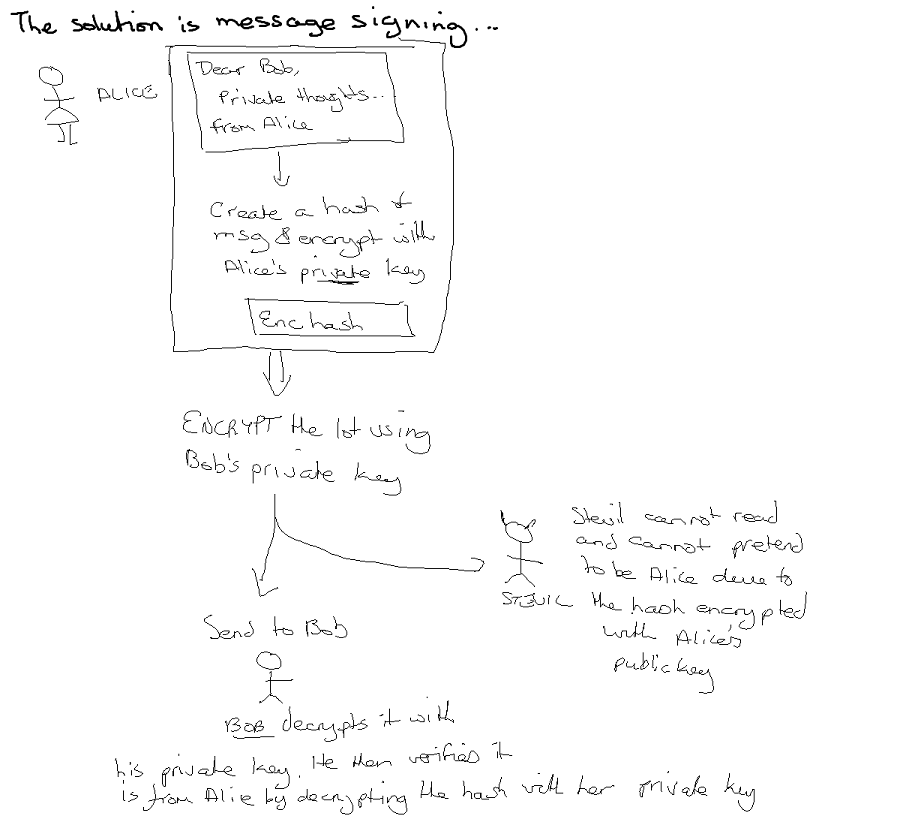 The solution is message signing...
ALICE
Dear Bob,
Private thoughts...
from Alice
Create a hash of
msg & encrypt with
Alice's private key
Enc hash
ENCRYPT the lot using
Bob's private key
Stevil cannot read
and cannot pretend
to be Alice deue to
the hash encrypted
with Alice's
public key
STEVIL
Send to Bob
BOB decrypts it with
his private key. He then verifies it
is from Alie by decrypting the hash with her private key